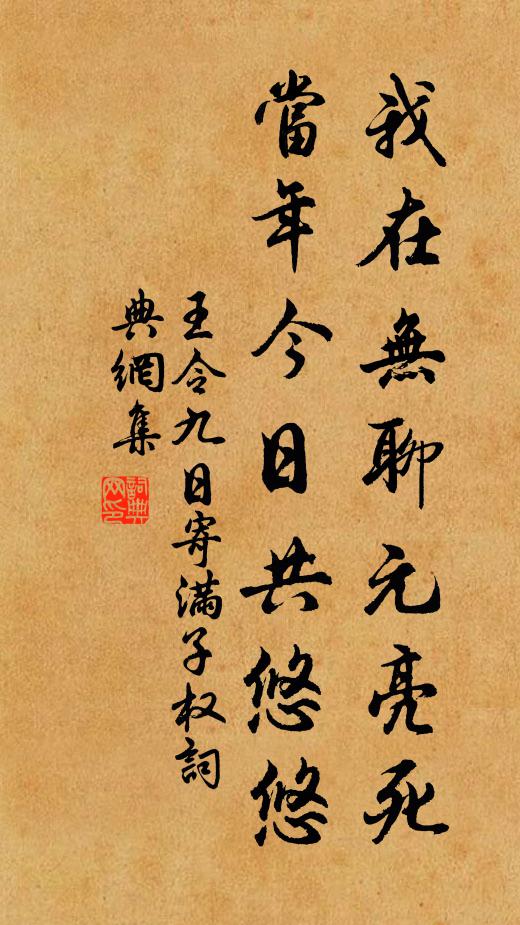 我在無聊元亮死
當年今日共悠悠
王令九日寄滿子权詞
典網集
詞典
网印